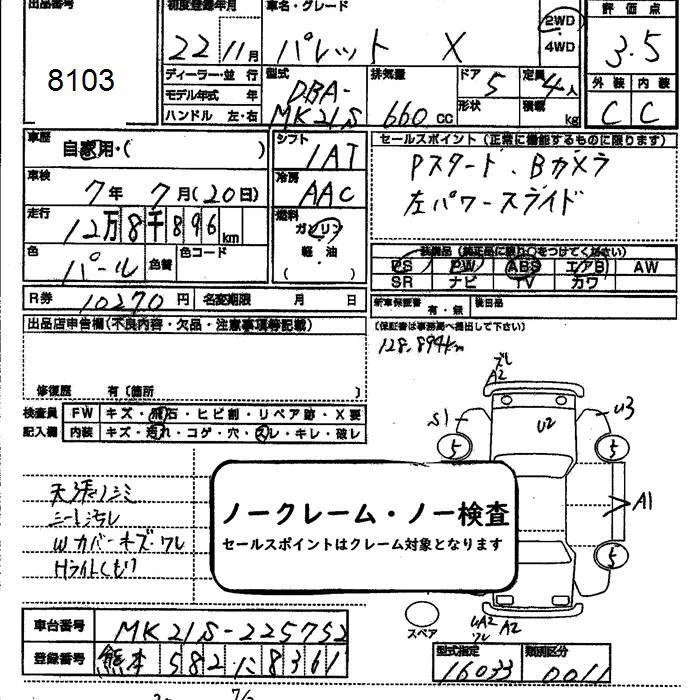 出品番号
8103
初度登録年月
22 11月
車名・グレード
パレット X
2WD
4WD
評価点
3.5
ディーラー・並行
モデル年式 年
ハンドル 左・右
型式
DBA-
MK21S
排気量
660 cc
ドア 5
形状
定員 4人
積載 kg
外装 内装
C C
車歴
自家用・( )
車検
7年 7月(20日)
走行
12万8千896km
色
パール
色替
色コード
シフト
IAT
冷房
AAC
燃料
ガソリン
軽・油
( )
セールスポイント (正常に機能するものに限ります)
Pスタート・Bカメラ
左パワースライド
装備品 (純正品に限り○をつけてください)
PS PW ABS エアB AW
SR ナビ TV カワ
R券 10270円 名変期限 月 日
新車保証書 有・無 後日品
(保証書は事務局へ提出して下さい)
128.894km
出品店申告欄(不良内容・欠品・注意事項等記載)
修復歴 有(箇所 )
検査員 FW キズ・飛石・ヒビ割・リペア跡・X要
記入欄 内装 キズ・汚れ・コゲ・穴・スレ・キレ・破レ
ズレ
A2
S1
U2
U3
5 5
A1
5
天張シミ
シートヨゴレ
Wカバーキズ・ワレ
Hライトくもり
ノークレーム・ノー検査
セールスポイントはクレーム対象となります
スペア
UA2
ワレ
A2
車台番号 MK21S-225752
登録番号 熊本 582 に 8361
型式指定
16033
類別区分
0011